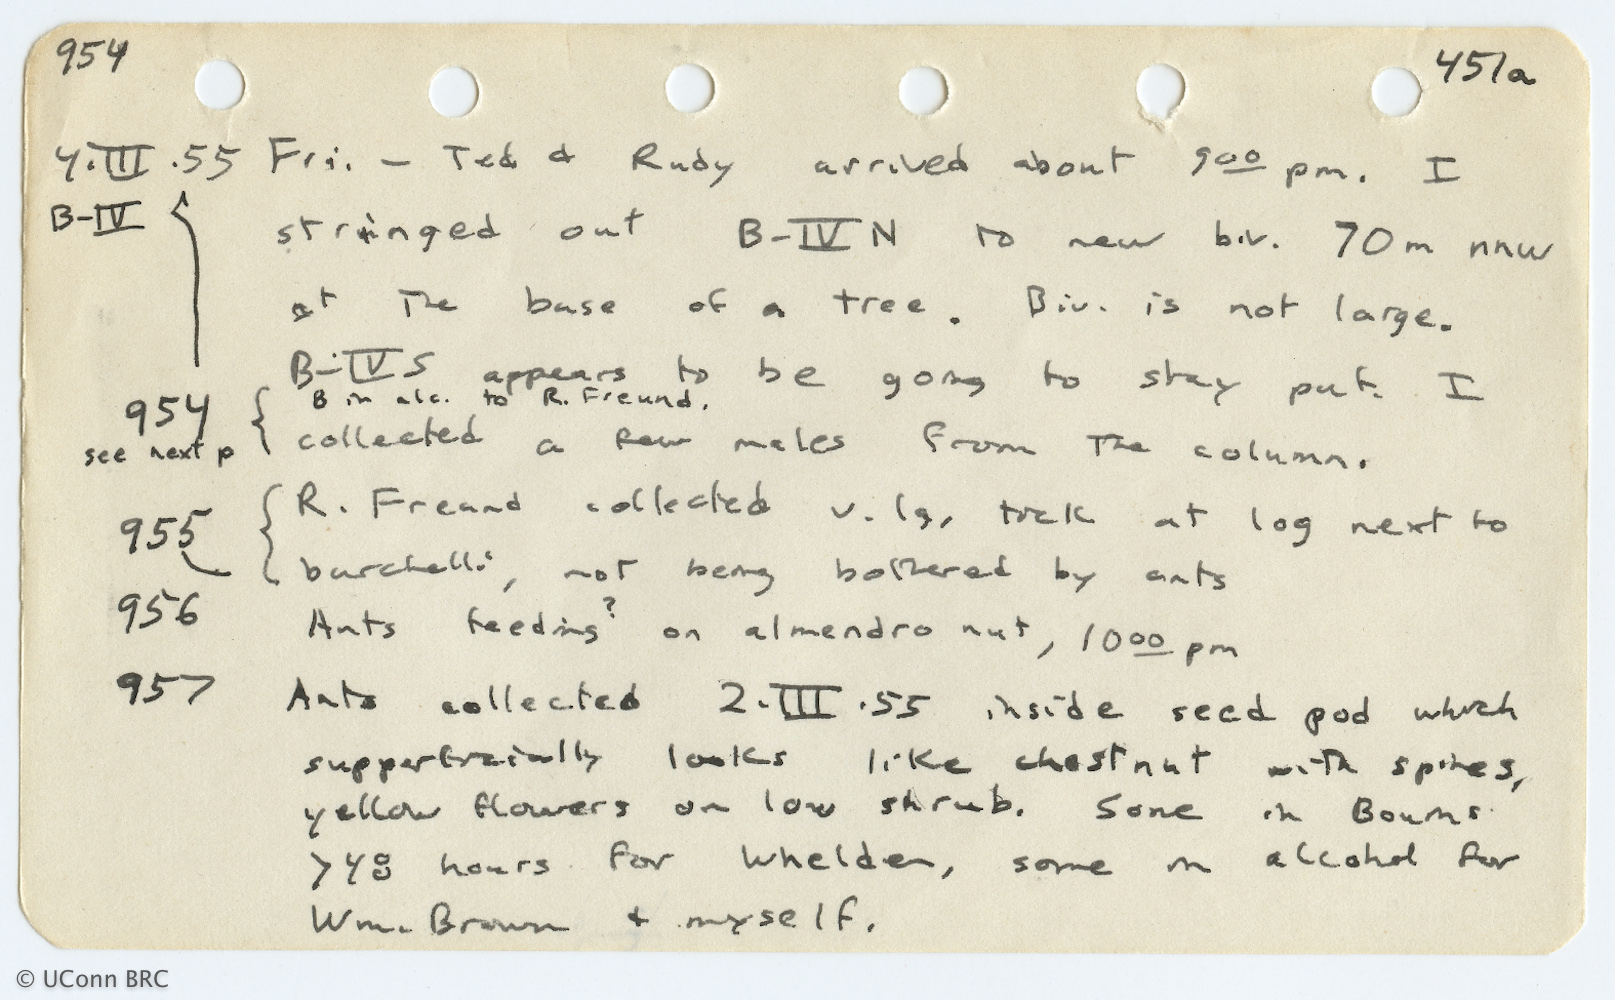 954 451a
4.III.55 Fri. – Ted & Rudy arrived about 900 pm. I
B-IV stringed out B-IV N to new biv. 70m nnw
at The base of a tree. Biv. is not large.
B-IV S appears to be going to stay put. I
954 B in alc. to R. Freund.
see next p collected a few males from The column.
955 R. Freund collected v. lg. tick at log next to
burchelli, not being bothered by ants
956 Ants feeding? on almendro nut, 1000 pm
957 Ants collected 2.III.55 inside seed pod which
looks like chestnut with spines,
yellow flowers on low shrub. Some in Bouins
>48 hours for Whelden, some in alcohol for
Wm. Brown & myself.
© UConn BRC